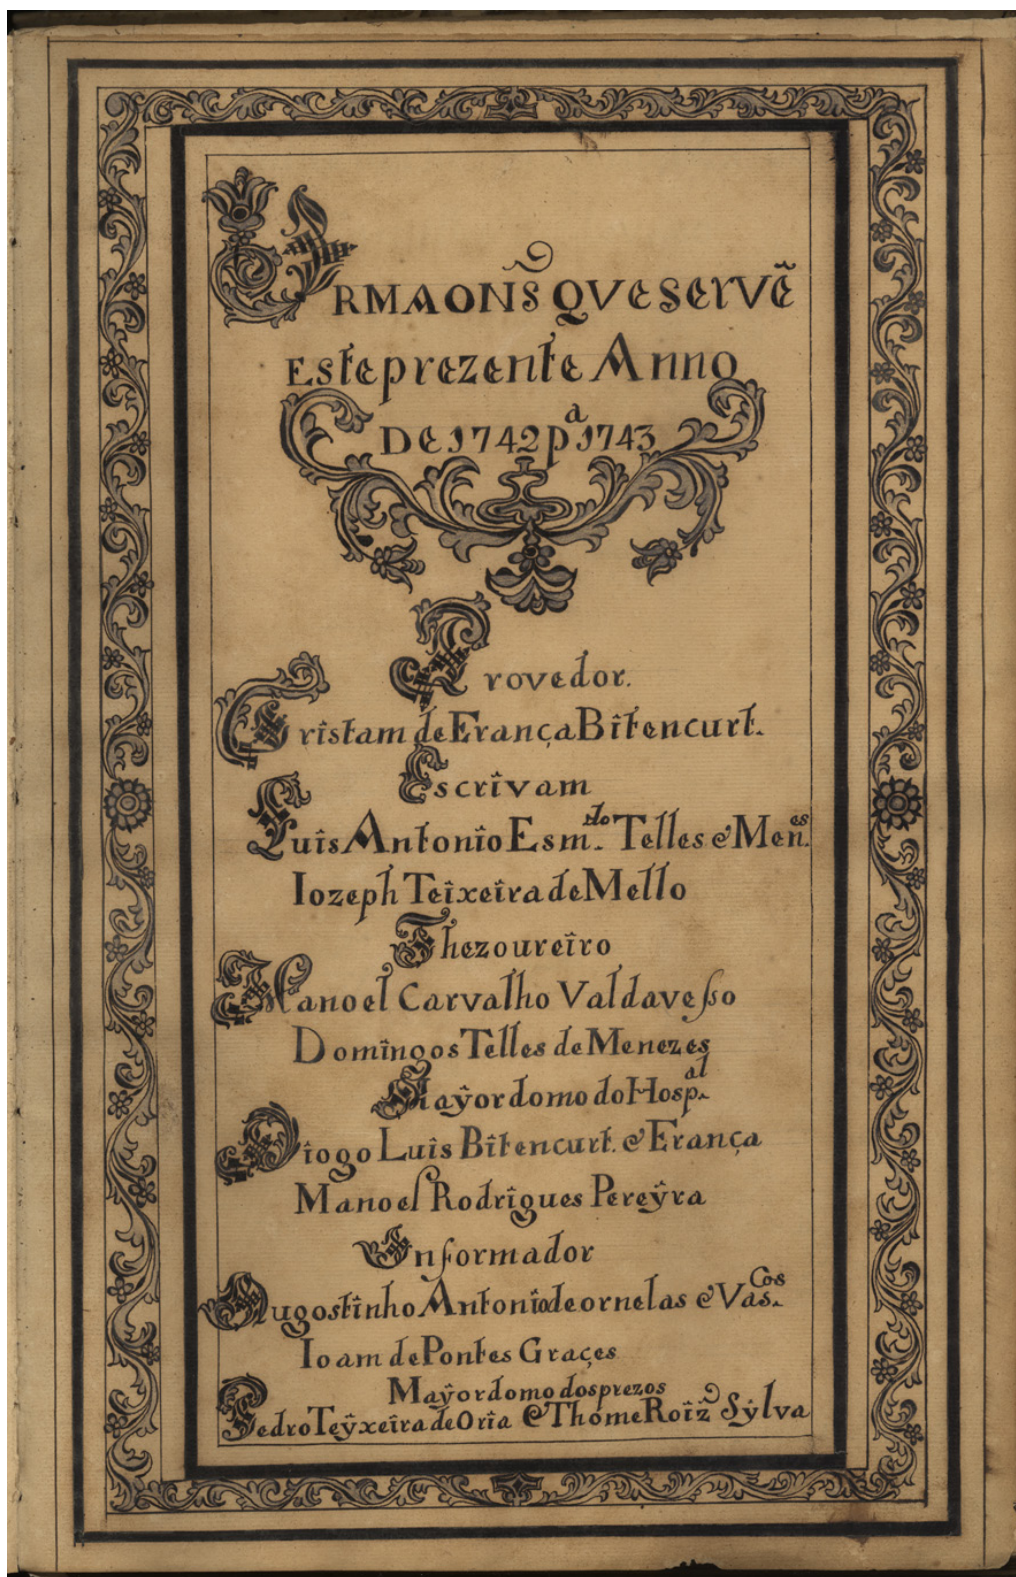 IRMAONS̃ QVE SERVẼ
Este prezente Anno
DE 1742 pᵃ 1743
Provedor.
Tristam de França Bitencurt.
Escrivam
Luis Antonio Esm.ᵈᵒ Telles e Men.ᵉˢ
Iozeph Teixeira de Mello
Thezoureiro
Manoel Carvalho Valdavesso
Domingos Telles de Menezes
Mayordomo do Hosp.ᵃˡ
Diogo Luis Bitencurt. e França
Manoel Rodrigues Pereÿra
Informador
Augostinho Antonio de ornelas e Vas.ᶜᵒˢ
Ioam de Pontes Graçes
Maÿordomo dos prezos
Pedro Teÿxeira de Oria e Thome Roiz̃ Sylva